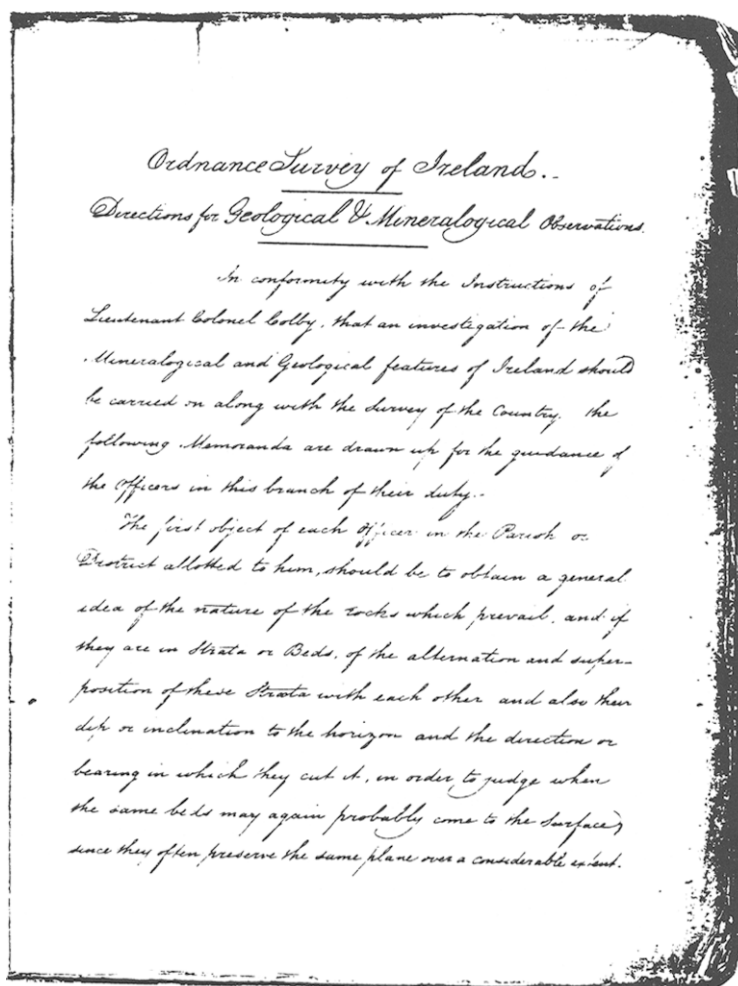 Ordnance Survey of Ireland..
Directions for Geological & Mineralogical Observations.
In conformity with the Instructions of
Lieutenant Colonel Colby, that an investigation of the
Mineralogical and Geological features of Ireland should
be carried on along with the Survey of the Country. the
following Memoranda are drawn up for the guidance of
the Officers in this branch of their duty..
The first object of each Officer in the Parish or
District allotted to him, should be to obtain a general
idea of the nature of the rocks which prevail, and if
they are in Strata or Beds, of the alternation and super-
position of these Strata with each other and also their
dip or inclination to the horizon and the direction or
bearing in which they cut it, in order to judge when
the same beds may again probably come to the Surface,
since they often preserve the same plane over a considerable extent.